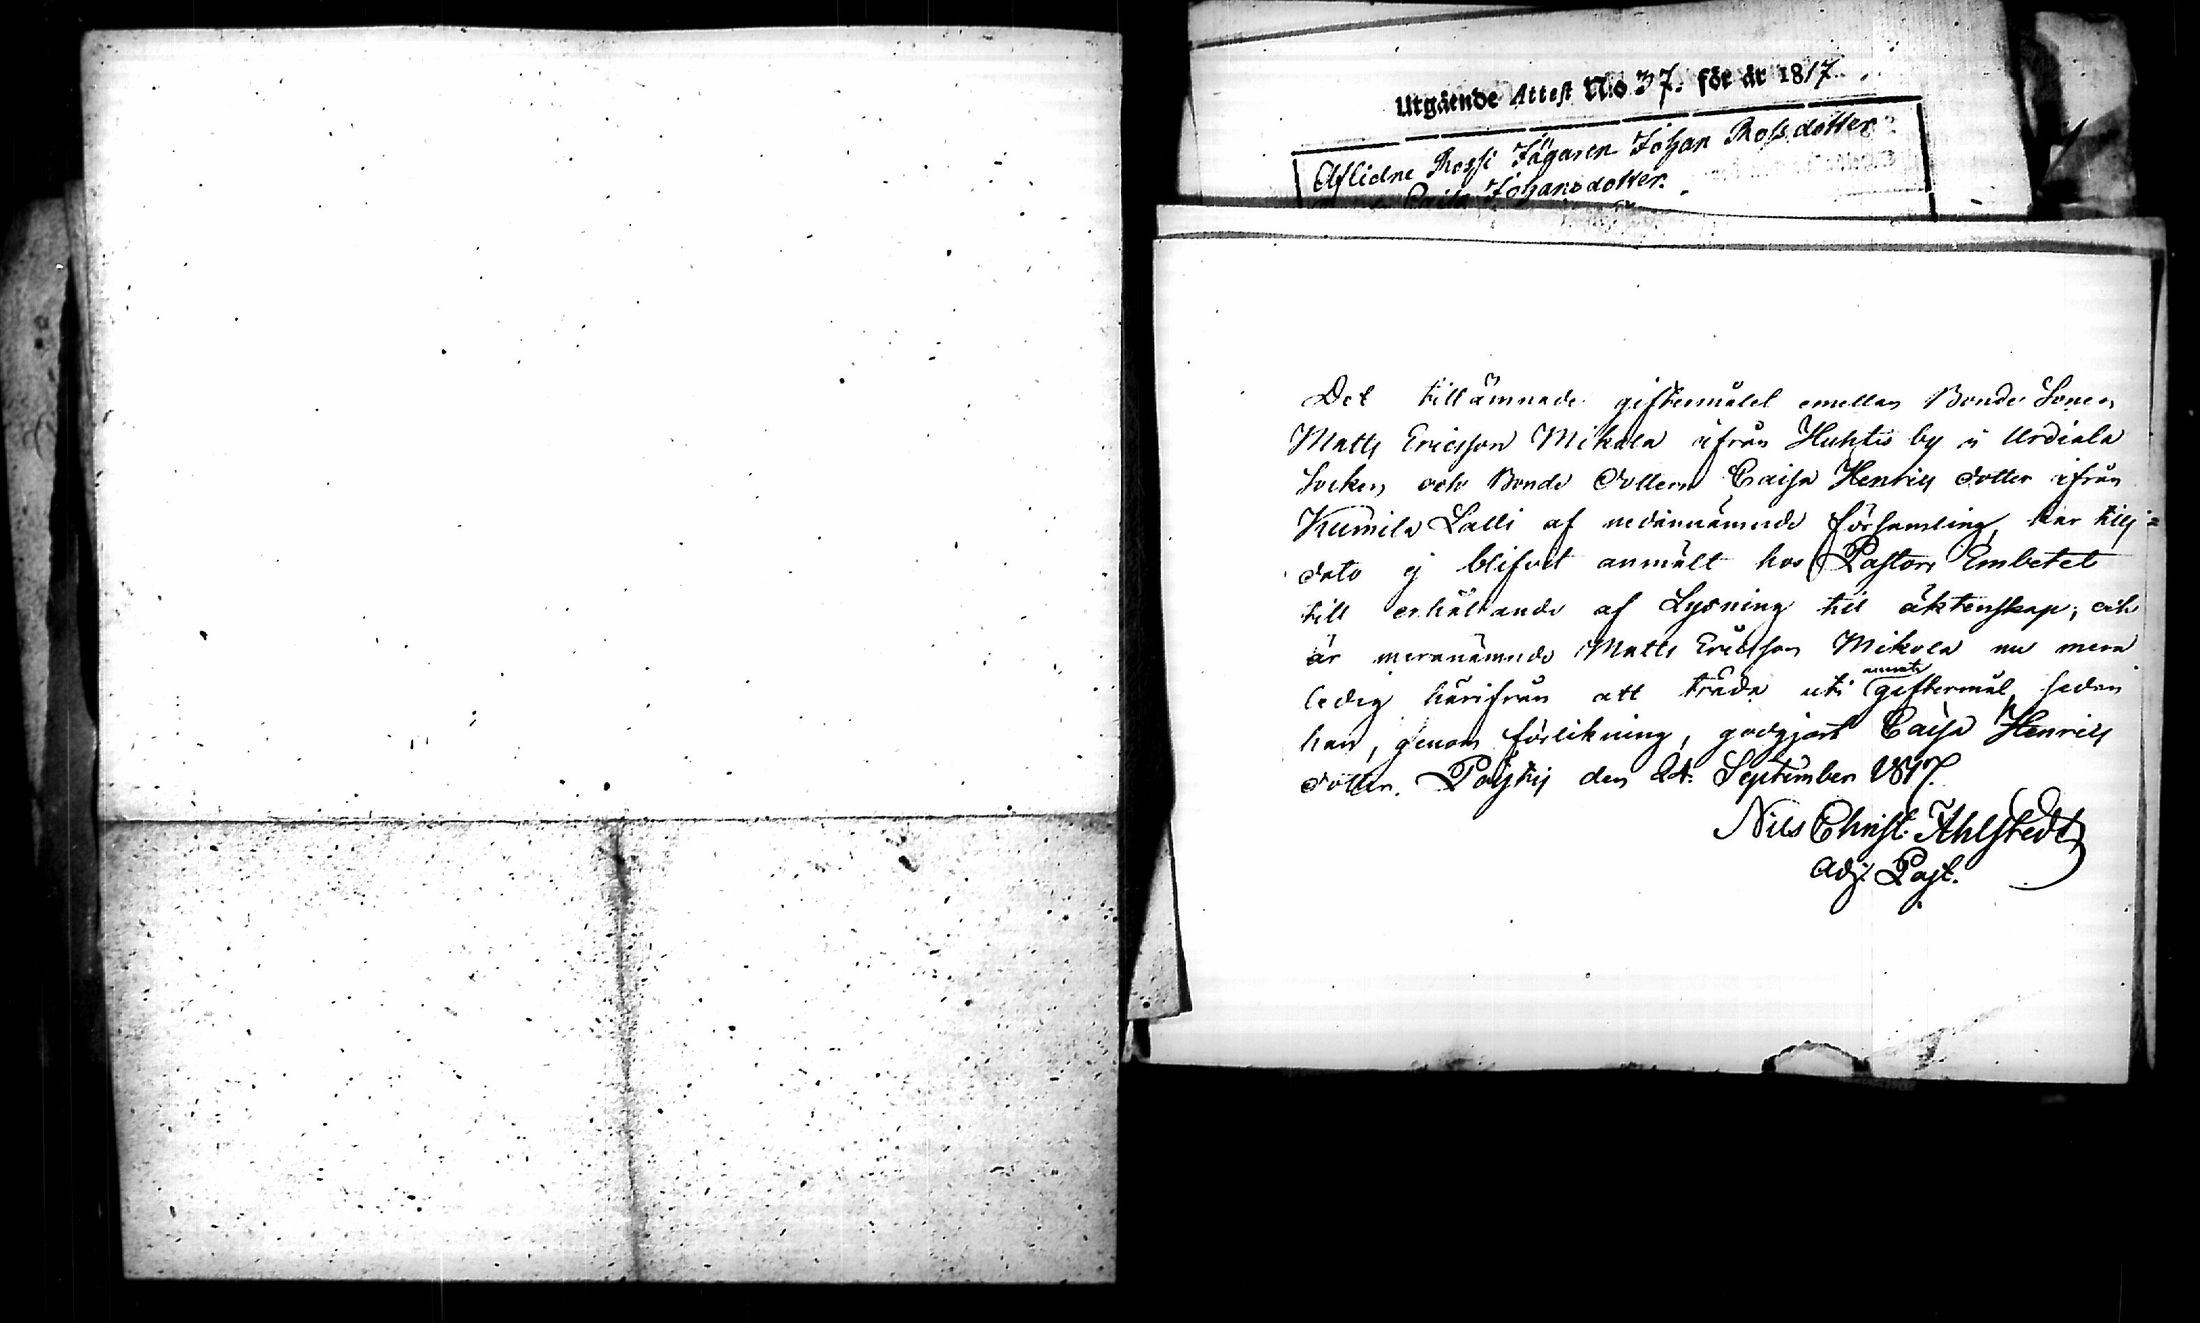 Utgående Attest N:o 37. för år 1817.
Aflidne Jägaren Johan
Caisa Johansdotter.
Det tillämnade giftermålet emellan Bonde Sonen
Matts Ericsson Mikola ifrån Huhtis by i Urdiala
Socken och Bonde dottern Caisa Henrics dotter ifrån
Kumila Lalli af nedannämnde församling, har tills
dato ej blifvit anmält hos Pastors Embetet
till erhållande af Lysning til äktenskap; och
är meranämnde Matts Ericsson Mikola nu mera
ledig härifrån att träda uti annat giftermål, sedan
han, genom förlikning, godgjort Caisa Henrics
dotter. Pöytis den 24. September 1817.
Nils Christ. Ahlstedt
Adj. Past.